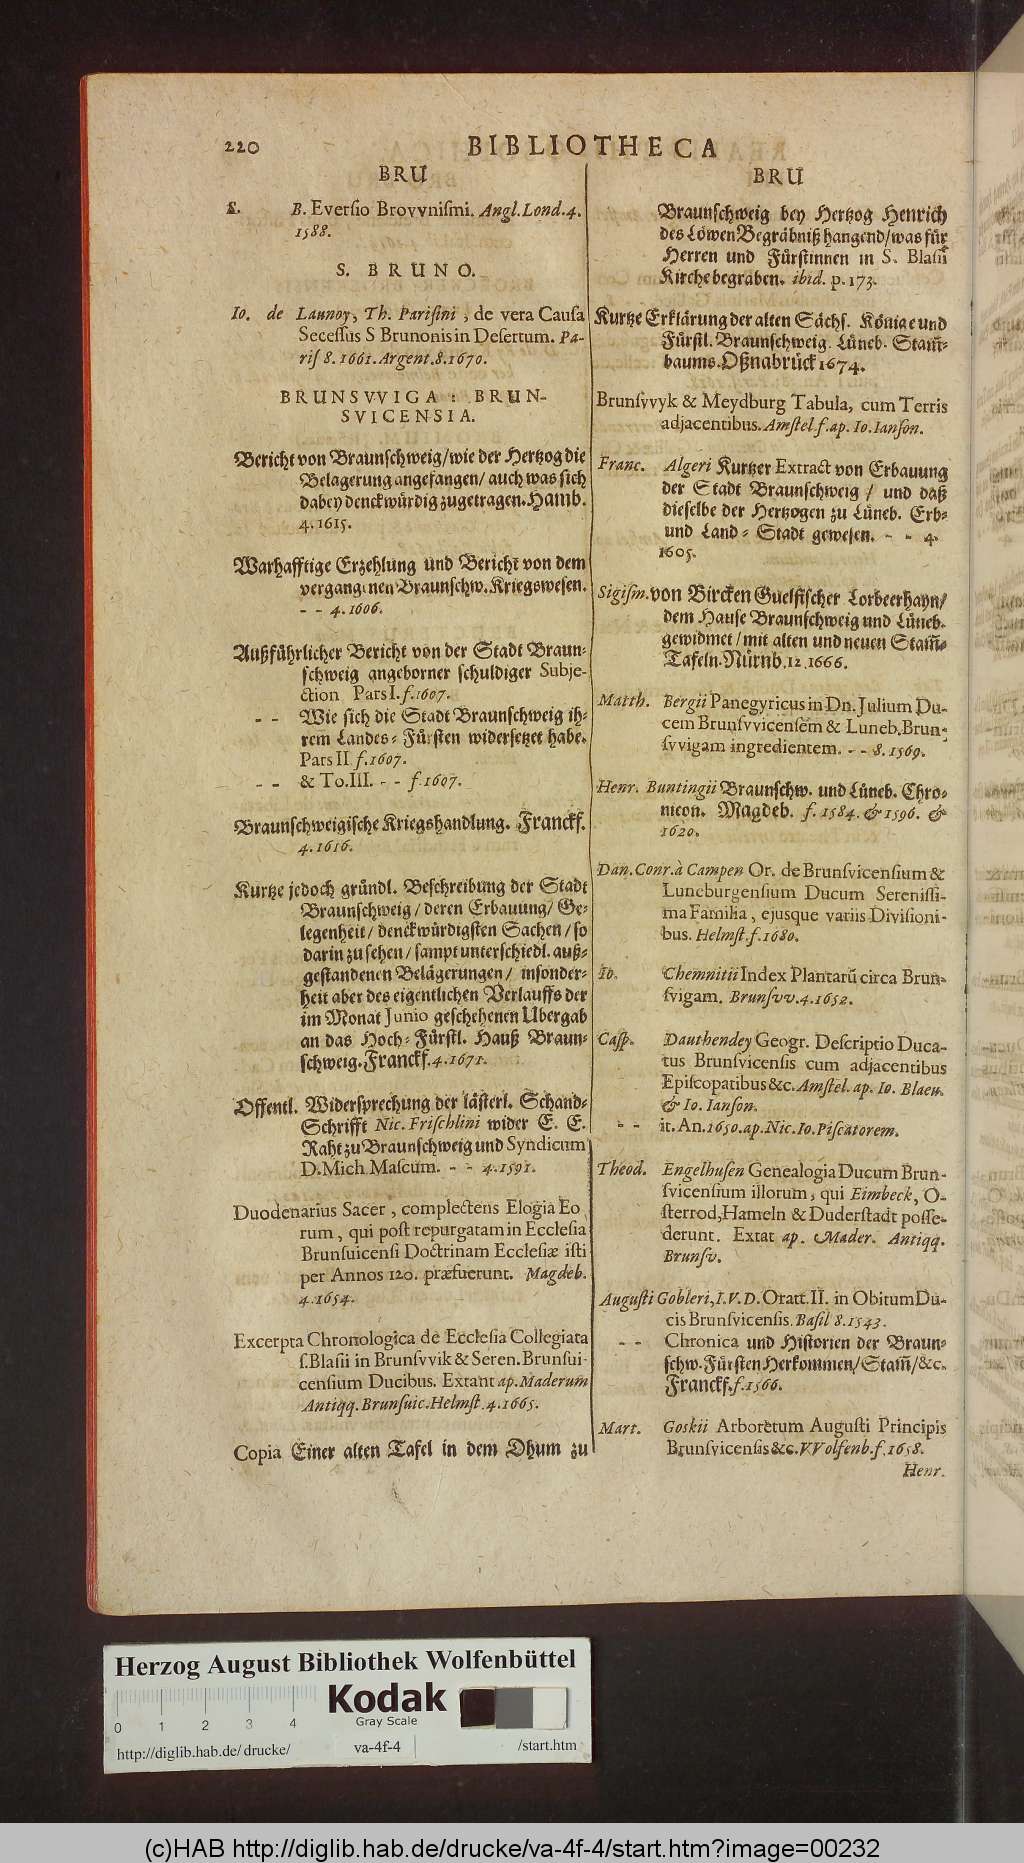 220 BIBLIOTHECA
BRU
B. Everſio Brovvniſmi. Angl. Lond. 4.
1588.
S. BRUNO.
Io. de Launoy, Th. Pariſini, de vera Cauſa
Seceſſus S Brunonis in Deſertum. Pa-
riſ 8. 1661. Argent. 8. 1670.
BRUNSVVIGA: BRUN-
SVICENSIA.
Bericht von Braunſchweig/ wie der Hertzog die
Belagerung angefangen/ auch was ſich
dabey denckwürdig zugetragen. Hamb.
4. 1615.
Warhafftige Erzehlung und Bericht von dem
vergangenen Braunſchw. Kriegsweſen.
- - 4. 1606.
Außführlicher Bericht von der Stadt Braun-
ſchweig angeborner ſchuldiger Subje-
ction Pars I. f. 1607.
- - Wie ſich die Stadt Braunſchweig ih-
rem Landes-Fürſten widerſetzet habe.
Pars II f. 1607.
- - & To. III. - - f. 1607.
Braunſchweigiſche Kriegshandlung. Franckf.
4. 1616.
Kurtze jedoch gründl. Beſchreibung der Stadt
Braunſchweig/ deren Erbauung/ Ge-
legenheit/ denckwürdigſten Sachen/ ſo
darin zu ſehen/ ſampt unterſchiedl. auß-
geſtandenen Belägerungen/ inſonder-
heit aber des eigentlichen Verlauffs der
im Monat Junio geſchehenen Ubergab
an das Hoch-Fürſtl. Hauß Braun-
ſchweig. Franckf. 4. 1671.
Offentl. Widerſprechung der läſterl. Schand-
Schrifft Nic. Friſchlini wider E. E.
Raht zu Braunſchweig und Syndicum
D. Mich Maſcum. - - 4. 1591.
Duodenarius Sacer, complectens Elogia Eo
rum, qui poſt repurgatam in Eccleſia
Brunſuicenſi Doctrinam Eccleſiæ iſti
per Annos 120. præfuerunt. Magdeb.
4. 1654.
Excerpta Chronologica de Eccleſia Collegiata
ſ. Blaſii in Brunſvvik & Seren. Brunſui-
cenſium Ducibus. Extant ap. Maderum
Antiqq. Brunſuic. Helmſt. 4. 1665.
Copia Einer alten Tafel in dem Dhum zu
BRU
Braunſchweig bey Hertzog Henrich
des Löwen Begräbniß hangend/ was für
Herren und Fürſtinnen in S. Blaſii
Kirche begraben. ibid. p. 173.
Kurtze Erklärung der alten Sächſ. Könige und
Fürſtl. Braunſchweig. Lüneb. Stam̃-
baums. Oßnabrück 1674.
Brunſvvyk & Meydburg Tabula, cum Terris
adjacentibus. Amſtel. f. ap. Io. Ianſon.
Franc. Algeri Kurtzer Extract von Erbauung
der Stadt Braunſchweig/ und daß
dieſelbe der Hertzogen zu Lüneb. Erb-
und Land-Stadt geweſen. - - 4.
1605.
Sigiſm. von Bircken Guelfiſcher Lorbeerhayn/
dem Hauſe Braunſchweig und Lüneb.
gewidmet/ mit alten und neuen Stam̃-
Tafeln. Nürnb. 12. 1666.
Matth. Bergii Panegyricus in Dn. Julium Du-
cem Brunſvvicenſem & Luneb. Brun-
ſvvigam ingredientem. - - 8. 1569.
Henr. Buntingii Braunſchw. und Lüneb. Chro-
nicon. Magdeb. f. 1584. & 1596. &
1620.
Dan. Conr. à Campen Or. de Brunſvicenſium &
Luneburgenſium Ducum Sereniſſi-
ma Familia, ejusque variis Diviſioni-
bus. Helmſt. f. 1680.
Io. Chemnitii Index Plantarũ circa Brun-
ſvigam. Brunſvv. 4. 1652.
Caſp. Dauthendey Geogr. Deſcriptio Duca-
tus Brunſvicenſis cum adjacentibus
Epiſcopatibus &c. Amſtel. ap. Io. Blaeu.
& Io. Ianſon.
- - it. An. 1650. ap. Nic. Io. Piſcatorem.
Theod. Engelhuſen Genealogia Ducum Brun-
ſvicenſium illorum, qui Eimbeck, O-
ſterrod, Hameln & Duderſtadt poſſe-
derunt. Extat ap. Mader. Antiqq.
Brunſv.
Auguſti Gobleri, I. V. D. Oratt. II. in Obitum Du-
cis Brunſvicenſis. Baſil 8. 1543.
- - Chronica und Hiſtorien der Braun-
ſchw. Fürſten Herkommen/ Stam̃/ &c.
Franckf. f. 1566.
Mart. Goskii Arboretum Auguſti Principis
Brunſvicenſis &c. VVolfenb. f. 1658.
Henr.
Herzog August Bibliothek Wolfenbüttel
Kodak
Gray Scale
0 1 2 3 4
http://diglib.hab.de/drucke/ va-4f-4 /start.htm
(c)HAB http://diglib.hab.de/drucke/va-4f-4/start.htm?image=00232